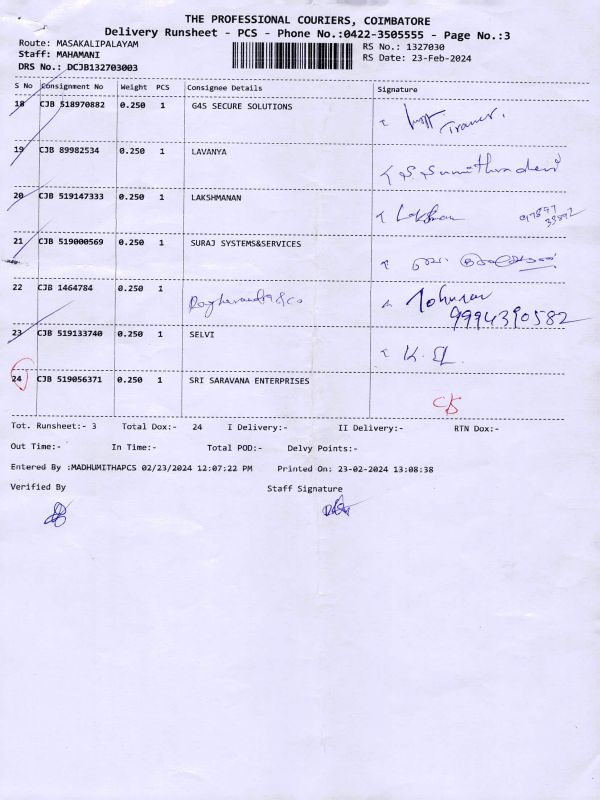 THE PROFESSIONAL COURIERS, COIMBATORE
Delivery Runsheet - PCS - Phone No.:0422-3505555 - Page No.:3
Route: MASAKALIPALAYAM
RS No.: 1327030
Staff: MAHAMANI
RS Date: 23-Feb-2024
DRS No.: DCJB132703003
S No Consignment No Weight PCS Consignee Details Signature
18 CJB 518970882 0.250 1 G4S SECURE SOLUTIONS
19 CJB 89982534 0.250 1 LAVANYA
20 CJB 519147333 0.250 1 LAKSHMANAN
21 CJB 519000569 0.250 1 SURAJ SYSTEMS&SERVICES
22 CJB 1464784 0.250 1
9994390582
23 CJB 519133740 0.250 1 SELVI
24 CJB 519056371 0.250 1 SRI SARAVANA ENTERPRISES
Tot. Runsheet:- 3 Total Dox:- 24 I Delivery:- II Delivery:- RTN Dox:-
Out Time:- In Time:- Total POD:- Delvy Points:-
Entered By :MADHUMITHAPCS 02/23/2024 12:07:22 PM Printed On: 23-02-2024 13:08:38
Verified By Staff Signature